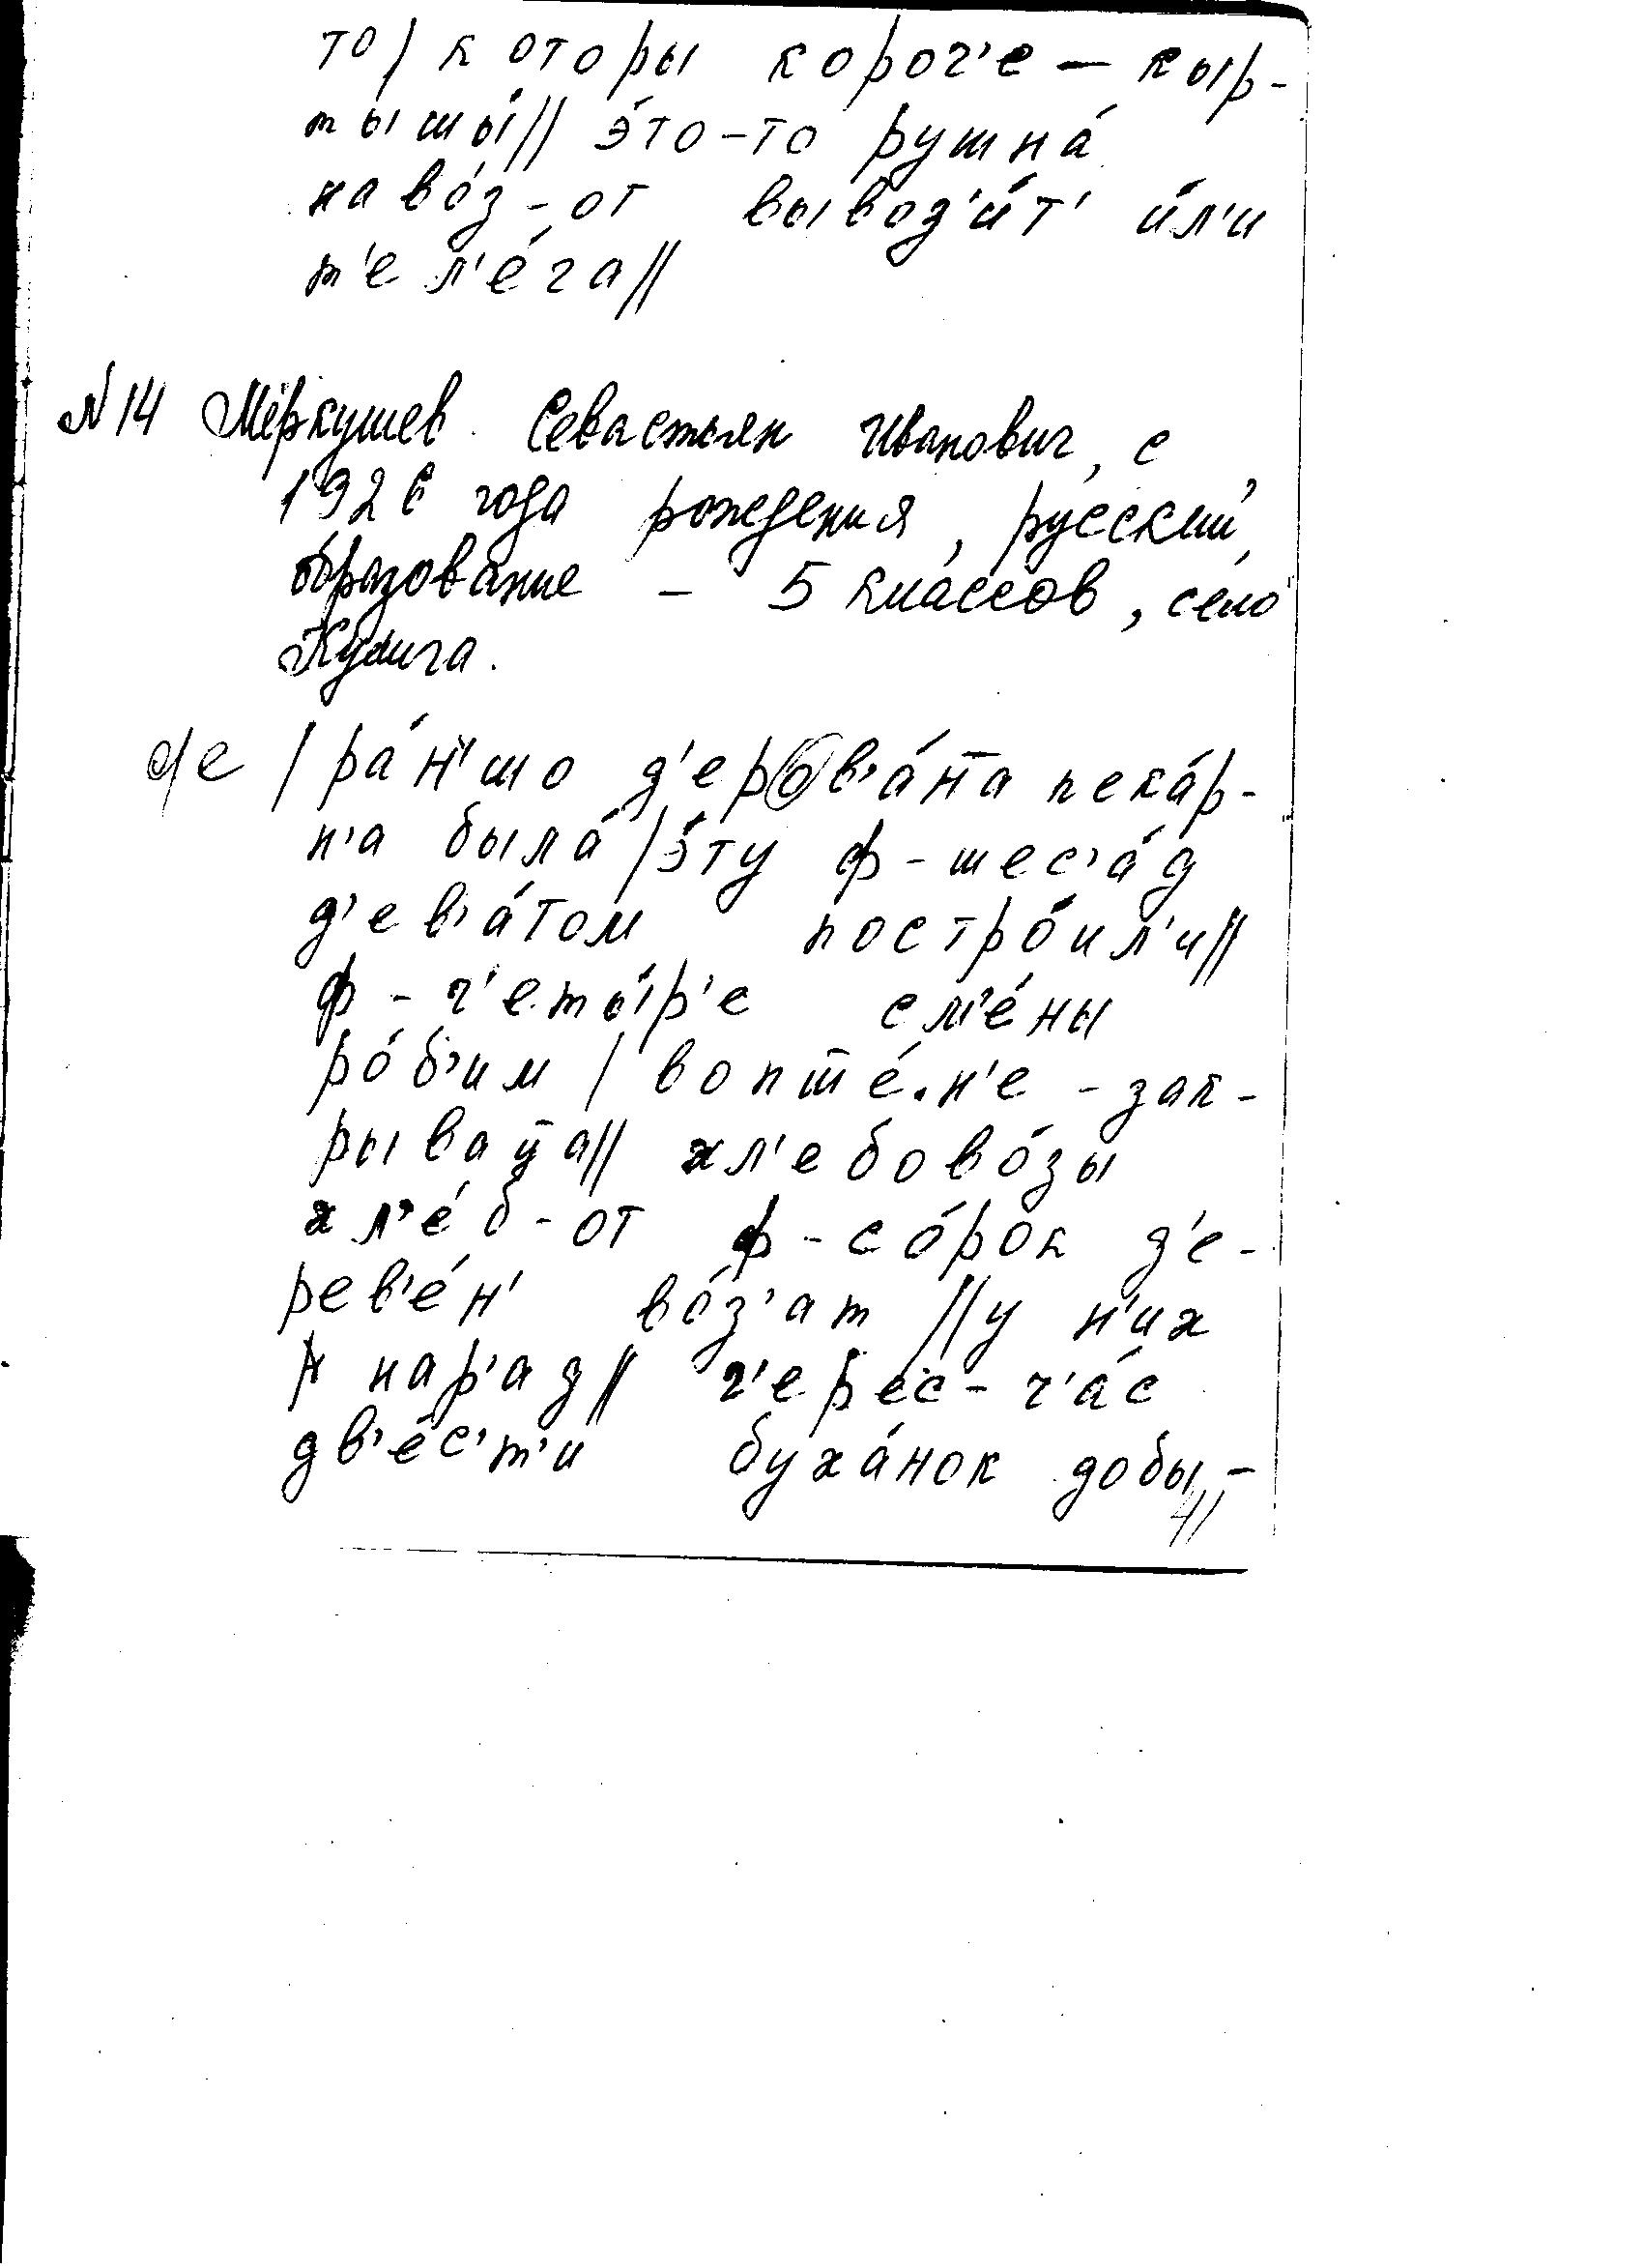 то / которы короч'е – кыр-
тышы́ // э́то-то рушна́
наво́з-от вывоз'и́т' и́л'и
т'ел'е́га //
№14 Меркушев Севастьян Иванович, с
1926 года рождения, русский,
образование – 5 классов, село
Кулига.
/ ра́н'шо д'ер о в'а́н̄а пека́р-
н'а была́ / э́ту ф-шес'а́д
д'ев'а́том постро́ил'и //
ф-ч'еты́р'е см'е́ны
ро́б'им / вопш̄е́.н'е-зак-
рывац̄а // хл'ебово́зы
хл'е́б-от ф-со́рок д'е-
рев'е́н' во́з'ат // у н'их
нар'ад // ч'ерес-ч'а́с
дв'е́с'т'и буха́нок добы-
41